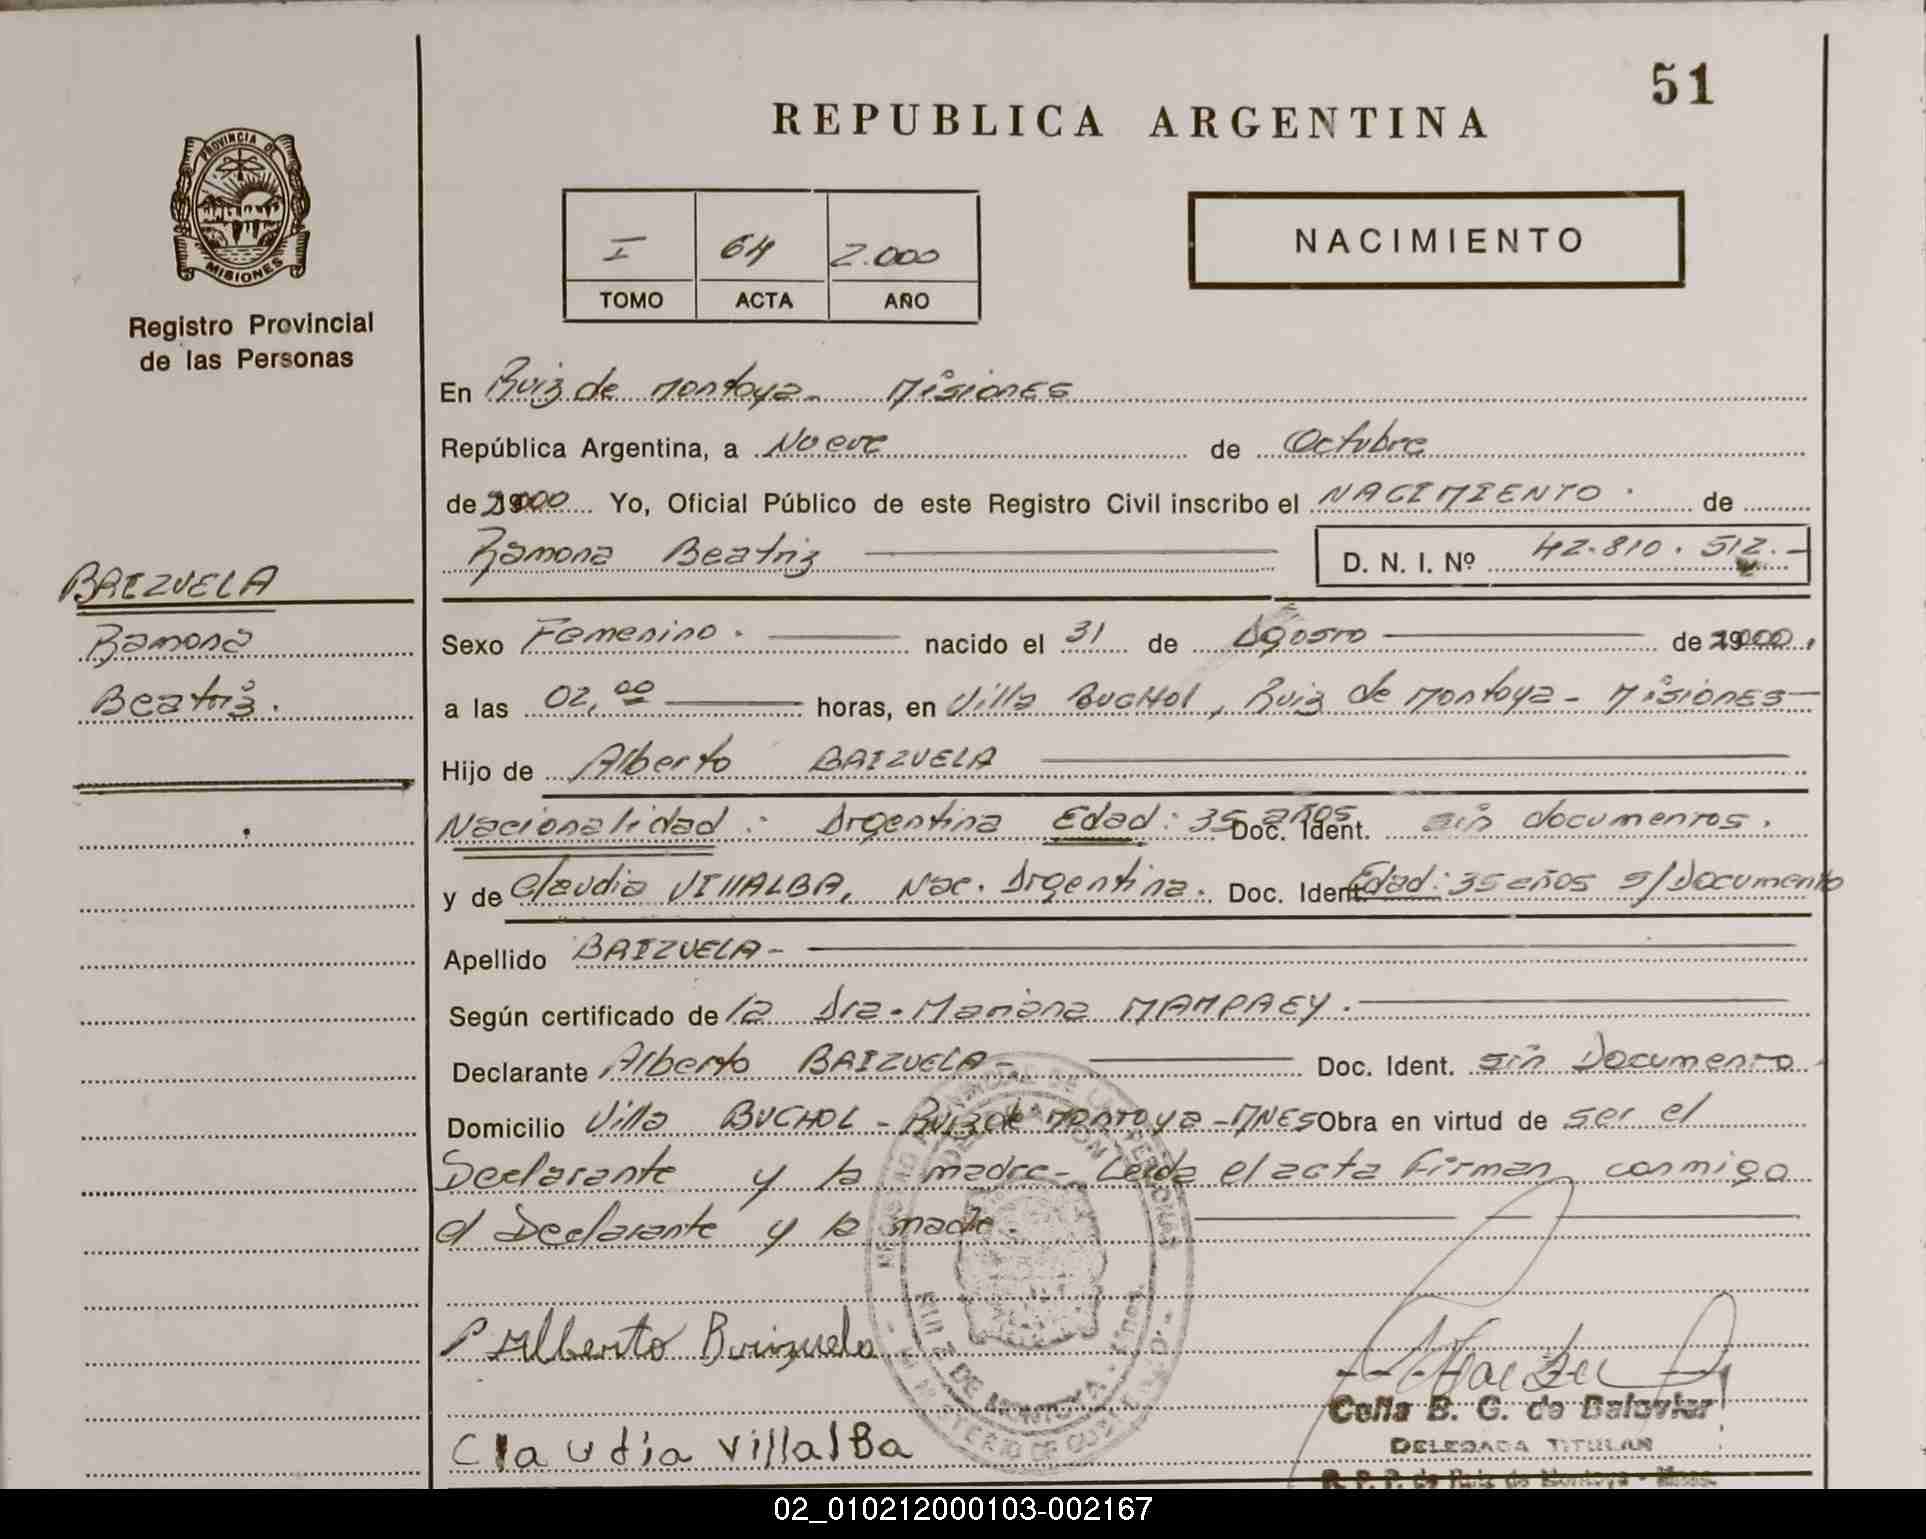 51
REPUBLICA ARGENTINA
PROVINCIA DE
MISIONES
Registro Provincial
de las Personas
I 64 2.000
TOMO ACTA AÑO
NACIMIENTO
En Ruiz de Montoya - Misiones
República Argentina, a Nueve de Octubre
de 2000 Yo, Oficial Público de este Registro Civil inscribo el NACIMIENTO. de
Ramona Beatriz D. N. I. Nº 42.810.512.-
BAIZUELA
Ramona
Beatriz.
Sexo Femenino. nacido el 31 de Agosto de 2000.
a las 02,00 horas, en Villa BUCHOL, Ruiz de Montoya - Misiones
Hijo de Alberto BAIZUELA
Nacionalidad: Argentina Edad: 35 años Doc. Ident. sin documentos.
y de Claudia VIllALBA, Nac. Argentina. Doc. Ident. Edad: 35 años s/Documento
Apellido BAIZUELA-
Según certificado de la Dra. Mariana MAMPAEY.
Declarante Alberto BAIZUELA- Doc. Ident. sin Documento
Domicilio Villa BUCHOL - Ruiz de Montoya - MNES Obra en virtud de ser el
Declarante y la madre- Leida el acta firman conmigo
el Declarante y la madre.
Alberto Brinzuela
Claudia villalBa
Celia B. G. de
DELEGADA TITULAR
R. P. P. de Ruiz de Montoya - Mnes.
02_010212000103-002167